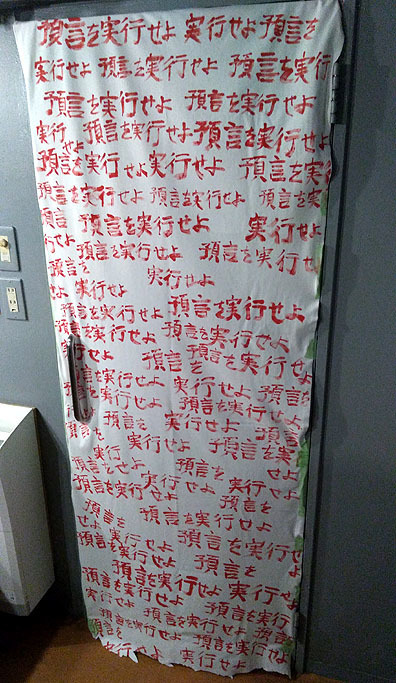 預言を実行せよ 実行せよ 預言を
実行せよ 預言を実行せよ 預言を実行
預言を実行せよ 預言を実行せよ
実行せよ 預言を実行せよ 預言を実行せよ
預言を実行せよ 実行せよ 預言を実行せよ
預言を実行せよ 預言を実行せよ 預言を実
預言を実行せよ 預言を実行せよ 実行せよ
預言を実行せよ 預言を実行せよ
預言をせよ 実行せよ 実行せよ
預言を実行せよ 預言を実行せよ
実行せよ 預言を実行せよ
預言を 預言を実行せよ
預言を実行せよ 実行せよ 預言を
預言を実行せよ 預言を実行せよ
預言を 預言を 実行せよ 預言を
実行せよ 預言を実
預言をせよ 実行 預言を
預言を実行せよ せよ 実行せよ
預言を 預言を実行せよ 預言を
せよ 実行
預言を実行せよ 預言を実行せよ
預言を実行せよ 預言を
預言を実行せよ 実行せよ
預言を実行せよ 預言を実行
預言を実行せよ 預言を実行せよ 預言
預言を 預言を実行せよ
行せよ 実行せよ